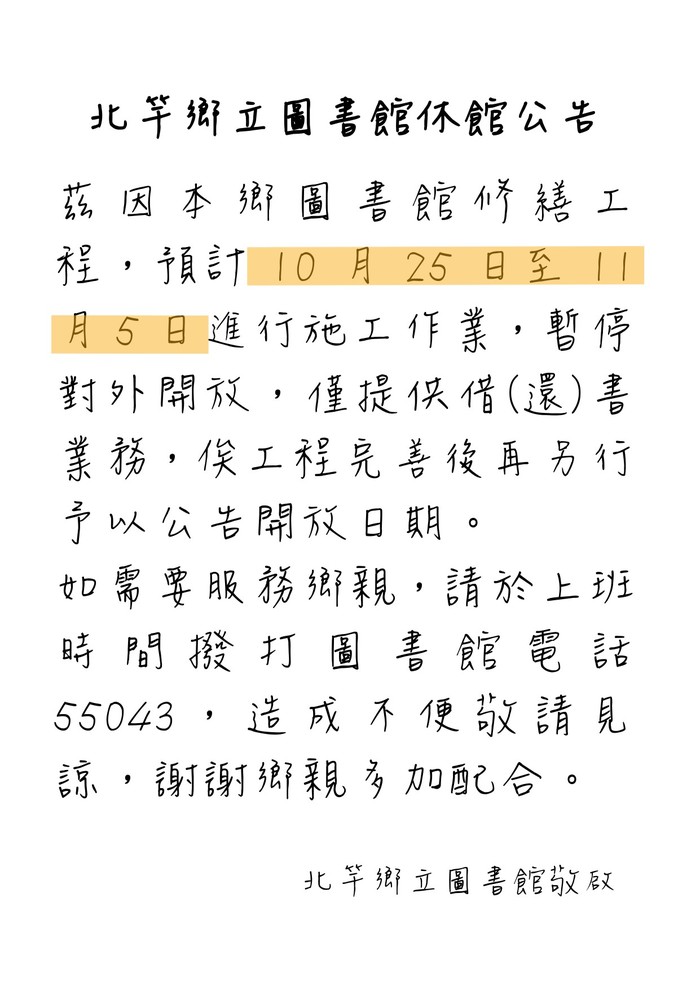 北竿鄉立圖書館休館公告
茲因本鄉圖書館修繕工
程，預計 10 月 25 日至 11
月 5 日進行施工作業，暫停
對外開放，僅提供借(還)書
業務，俟工程完善後再另行
予以公告開放日期。
如需要服務鄉親，請於上班
時間撥打圖書館電話
55043，造成不便敬請見
諒，謝謝鄉親多加配合。
北竿鄉立圖書館敬啟